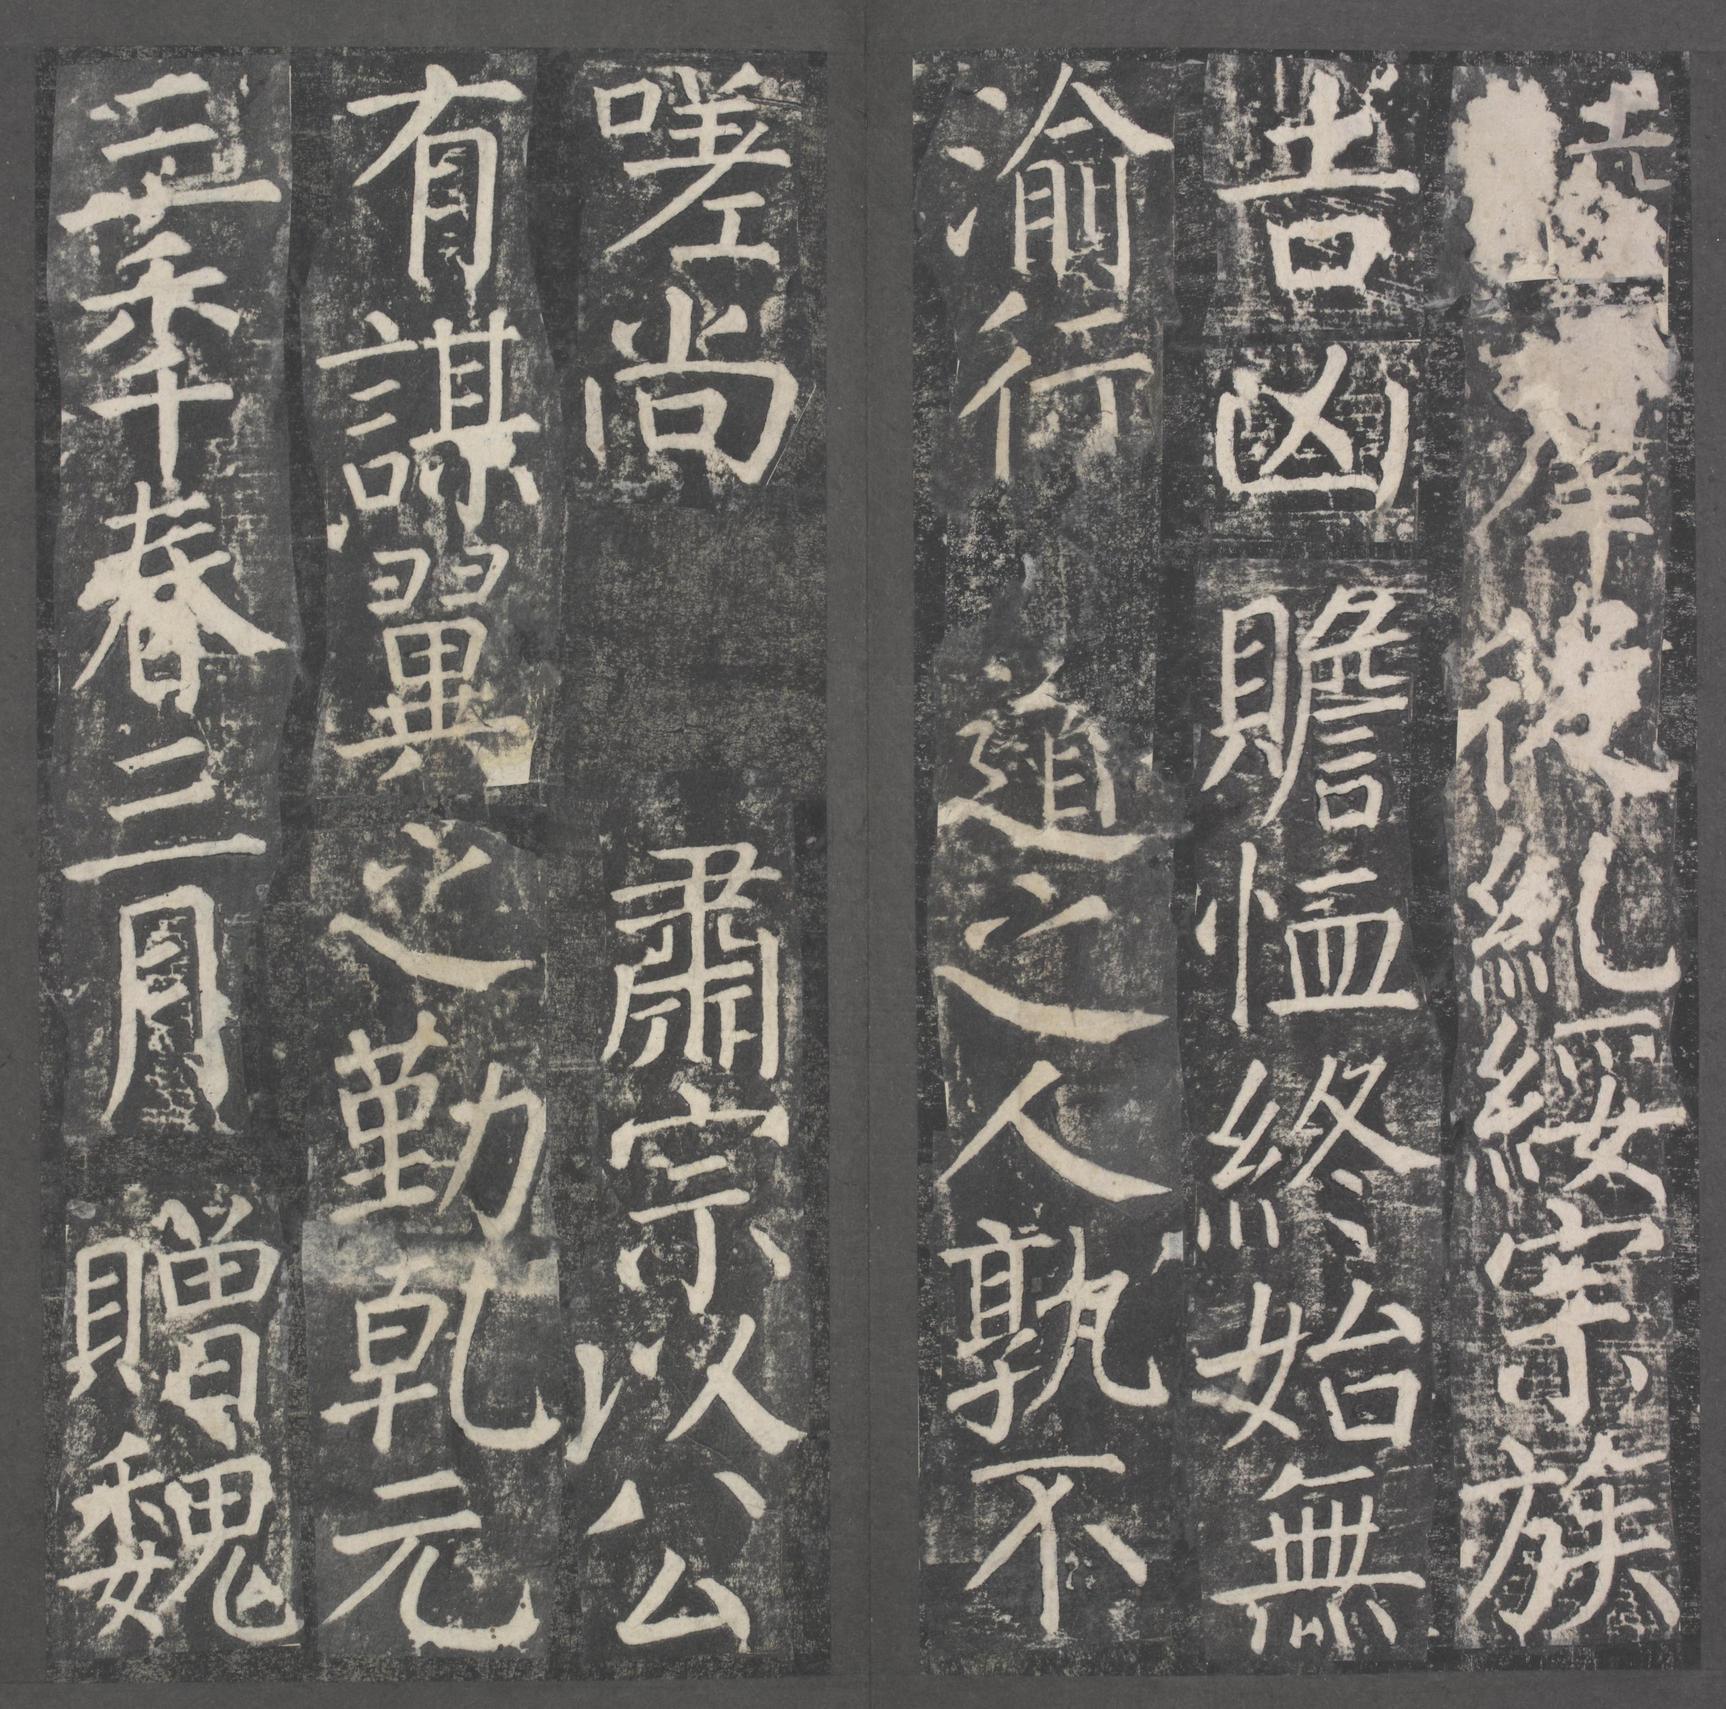 睦羣從糺綏宗族
吉凶贍恤終始無
渝行道之人孰不
嗟尚　肅宗以公
有謀翼之勤乾元
三秊春三月贈魏